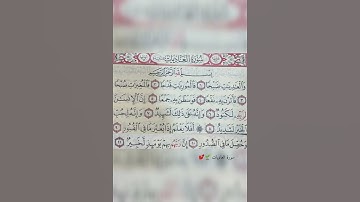 سُورَةُ العَادِيَاتِ
بِسْمِ اللَّهِ الرَّحْمَٰنِ الرَّحِيمِ
وَالْعَادِيَاتِ ضَبْحًا ١ فَالْمُورِيَاتِ قَدْحًا ٢ فَالْمُغِيرَاتِ صُبْحًا
٣ فَأَثَرْنَ بِهِ نَقْعًا ٤ فَوَسَطْنَ بِهِ جَمْعًا ٥ إِنَّ الْإِنسَانَ
لِرَبِّهِ لَكَنُودٌ ٦ وَإِنَّهُ عَلَىٰ ذَٰلِكَ لَشَهِيدٌ ٧ وَإِنَّهُ لِحُبِّ
الْخَيْرِ لَشَدِيدٌ ٨ أَفَلَا يَعْلَمُ إِذَا بُعْثِرَ مَا فِي الْقُبُورِ ٩
وَحُصِّلَ مَا فِي الصُّدُورِ ١٠ إِنَّ رَبَّهُم بِهِمْ يَوْمَئِذٍ لَّخَبِيرٌ ١١
سورة العاديات